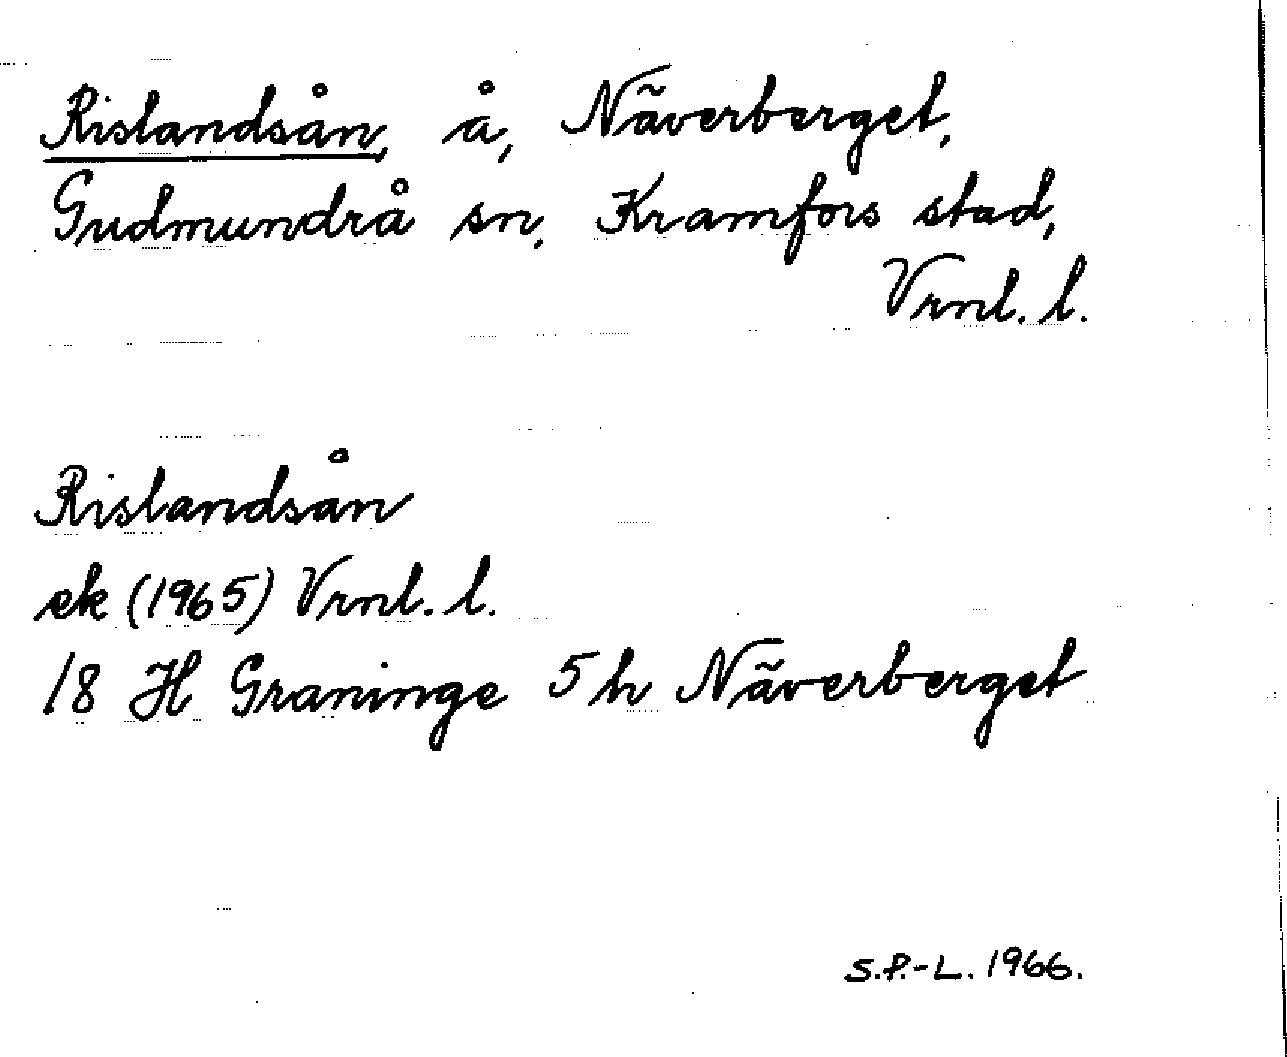 Rislandsån, å, Näverberget,
Gudmundrå sn, Kramfors stad,
Vrnl. l.
Rislandsån
ek (1965) Vrnl. l.
18 H Graninge 5 h Näverberget
S.P.-L. 1966.